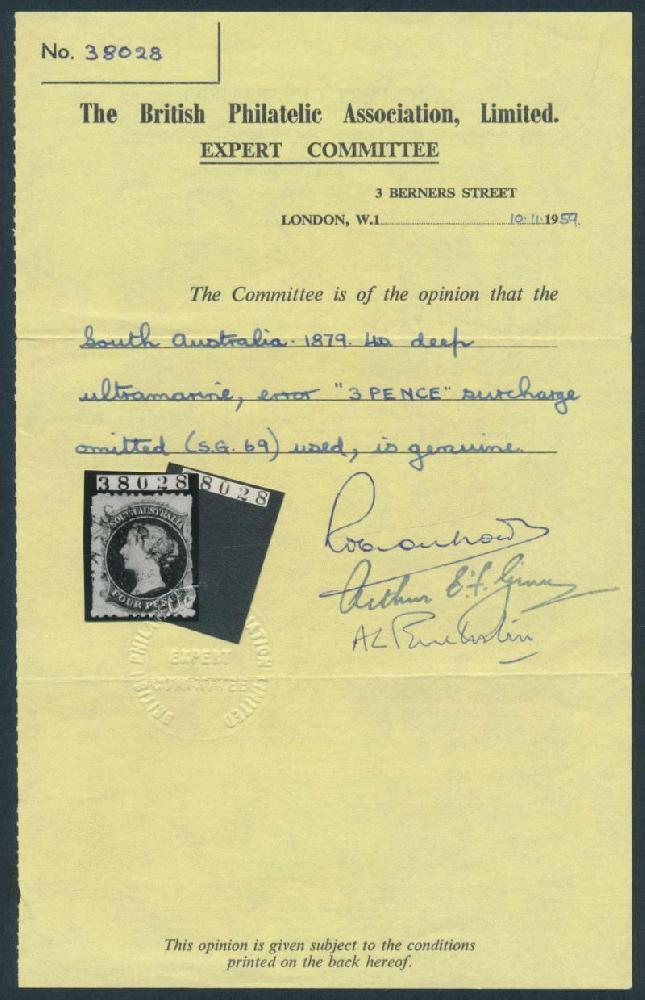 No. 38028
The British Philatelic Association, Limited.
EXPERT COMMITTEE
3 BERNERS STREET
LONDON, W.1 10·11·1959.
The Committee is of the opinion that the
South Australia. 1879. 4d deep
ultramarine, error "3 PENCE" surcharge
omitted (S.G. 69) used, is genuine.
38028
8028
SOUTH AUSTRALIA
FOUR PENCE
Arthur E. F.
BRITISH PHILATELIC ASSOCIATION LIMITED
EXPERT
COMMITTEE
This opinion is given subject to the conditions
printed on the back hereof.